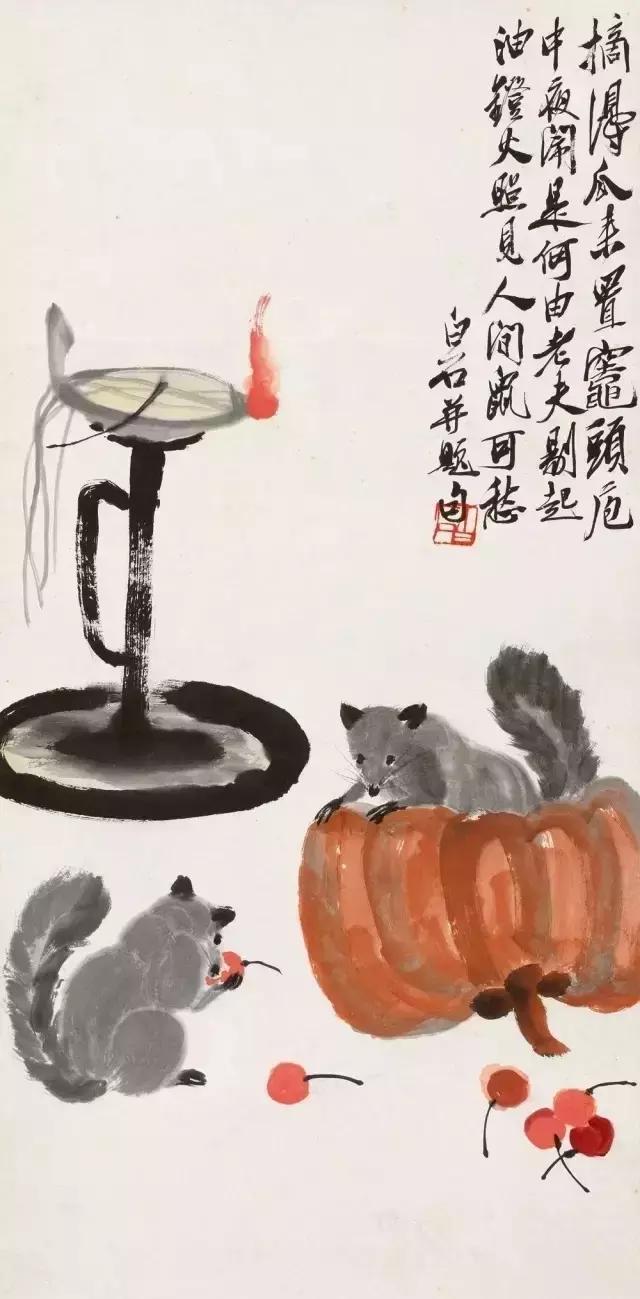 摘得瓜来置竈頭庖
中夜鬧是何由老夫剔起
油鐙火照見人間鼠可愁
白石并題句